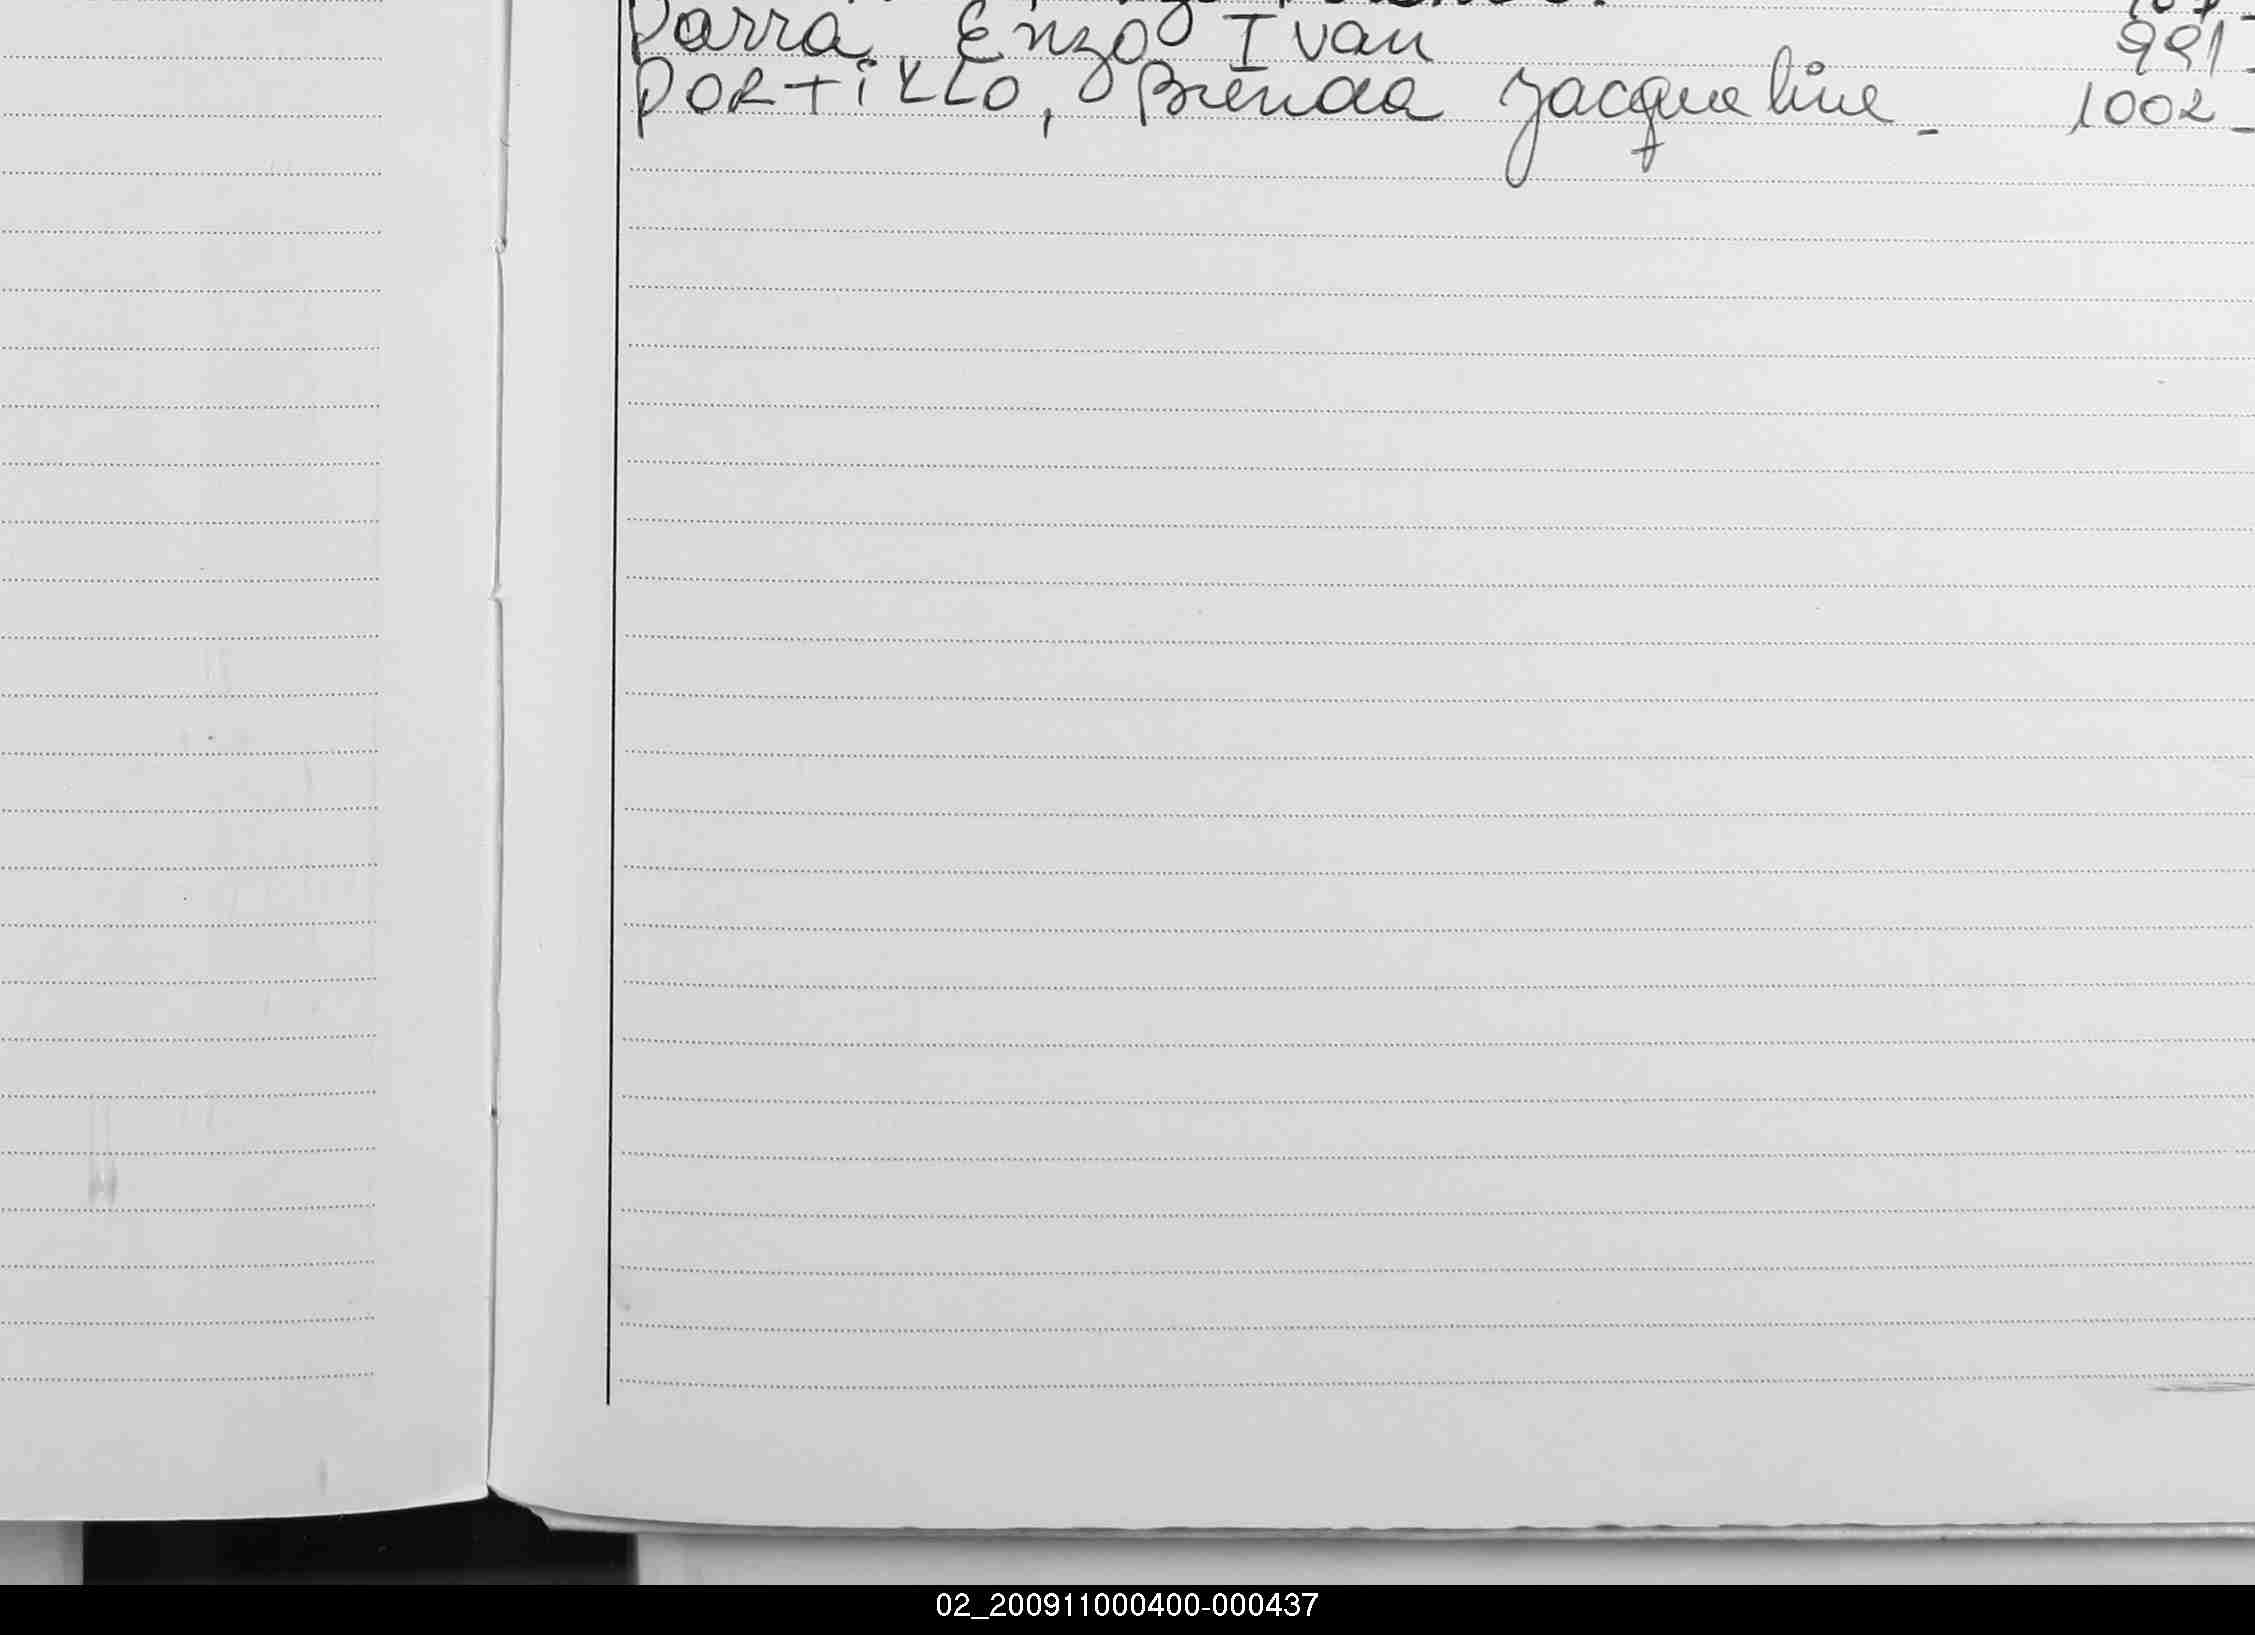 Parra Enzo Ivan 991-
PORTiLLO, Brenda Jacqueline - 1002-
02_200911000400-000437